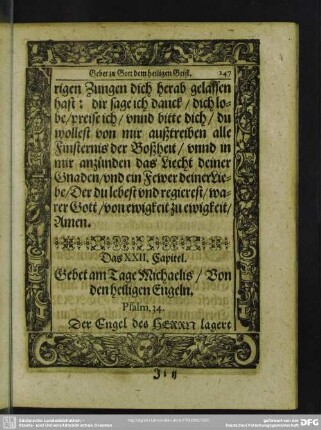 Gebet zu Gott dem heiligen Geist. 147
rigen Zungen dich herab gelassen
hast: dir sage ich danck / dich lo-
be / preise ich / vnnd bitte dich / du
wollest von mir außtreiben alle
Finsternis der Boßheit / vnnd in
mir anzünden das Liecht deiner
Gnaden / vnd ein Fewer deiner Lie-
be / Der du lebest vnd regierest / wa-
rer Gott / von ewigkeit zu ewigkeit /
Amen.
Das XXII. Capitel.
Gebet am Tage Michaelis / Von
den heiligen Engeln.
Psalm. 34.
Der Engel des HERRN lagert